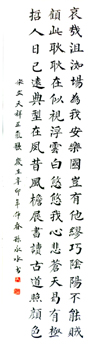 哀哉沮洳場為我安樂國豈有他繆巧陰陽不能賊
顧此耿耿在仰視浮雲白悠悠我心悲蒼天曷有極
哲人日已遠典型在夙昔風檐展書讀古道照顏色
宋文天祥正氣歌 辛卯年仲春孫永